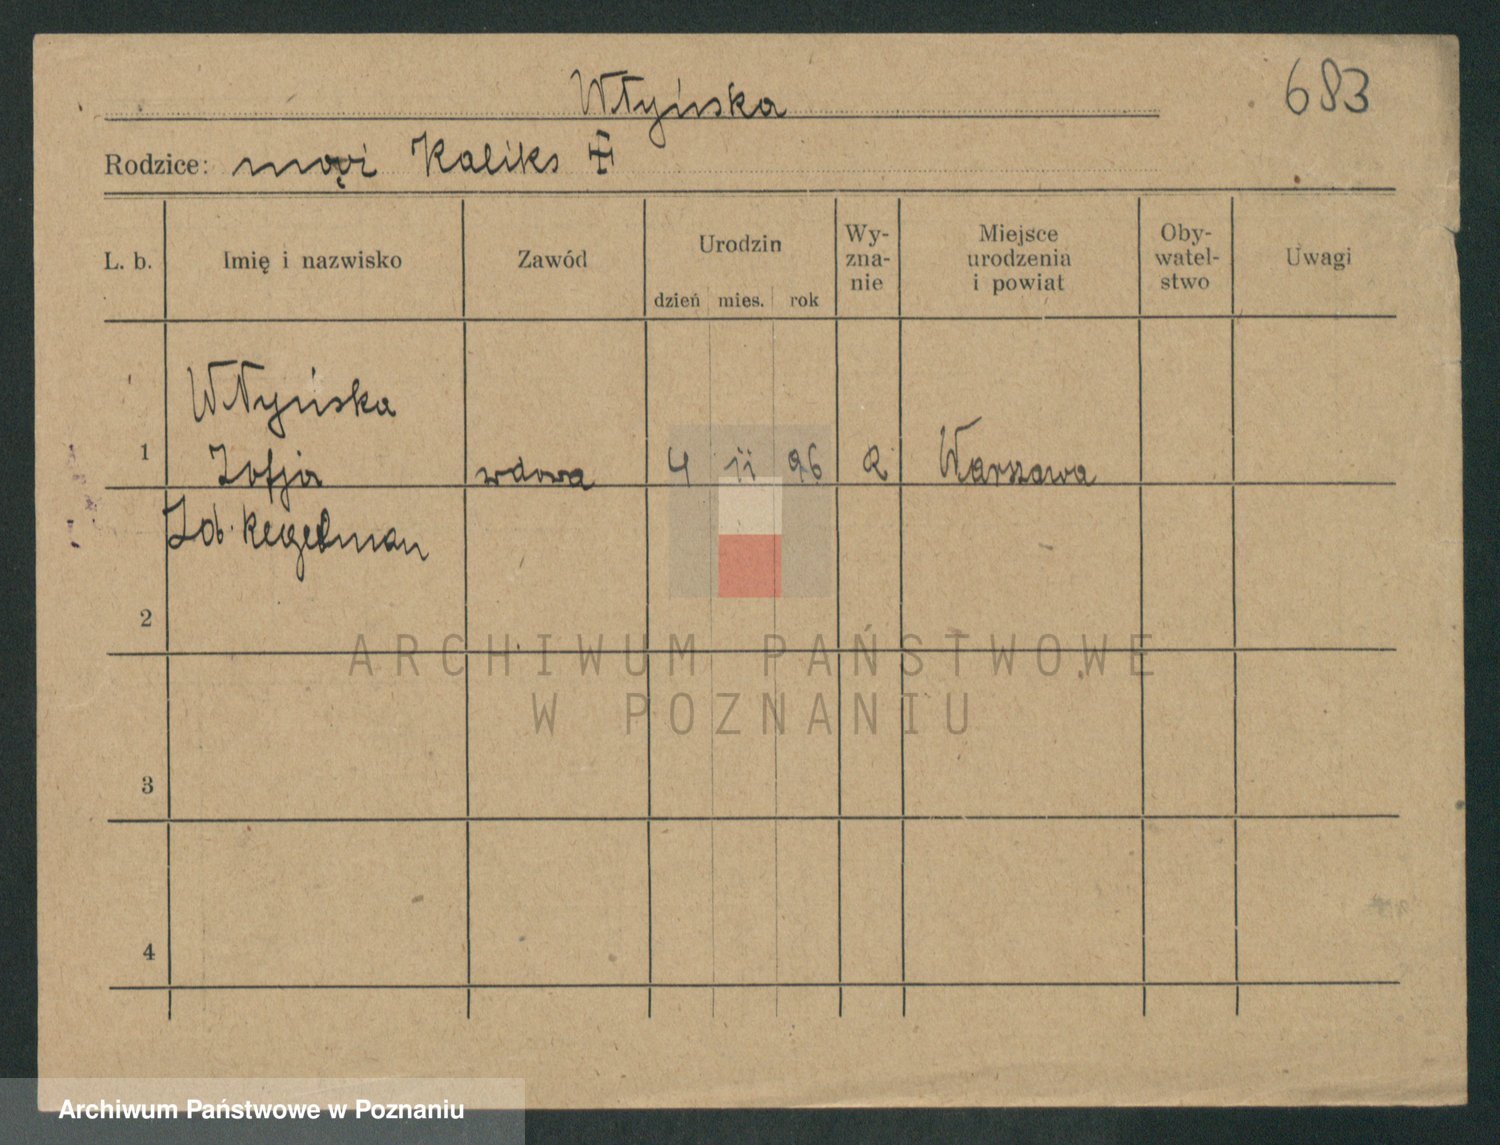 Włyńska
683
Rodzice: mąż Kaliks
L. b. Imię i nazwisko Zawód Urodzin dzień mies. rok Wy-zna-nie Miejsce urodzenia i powiat Oby-watel-stwo Uwagi
Włyńska
1 Zofja wdowa 4 ii 96 R Warszawa
Zd. Regelman
2
ARCHIWUM PAŃSTWOWE
W POZNANIU
3
4
Archiwum Państwowe w Poznaniu